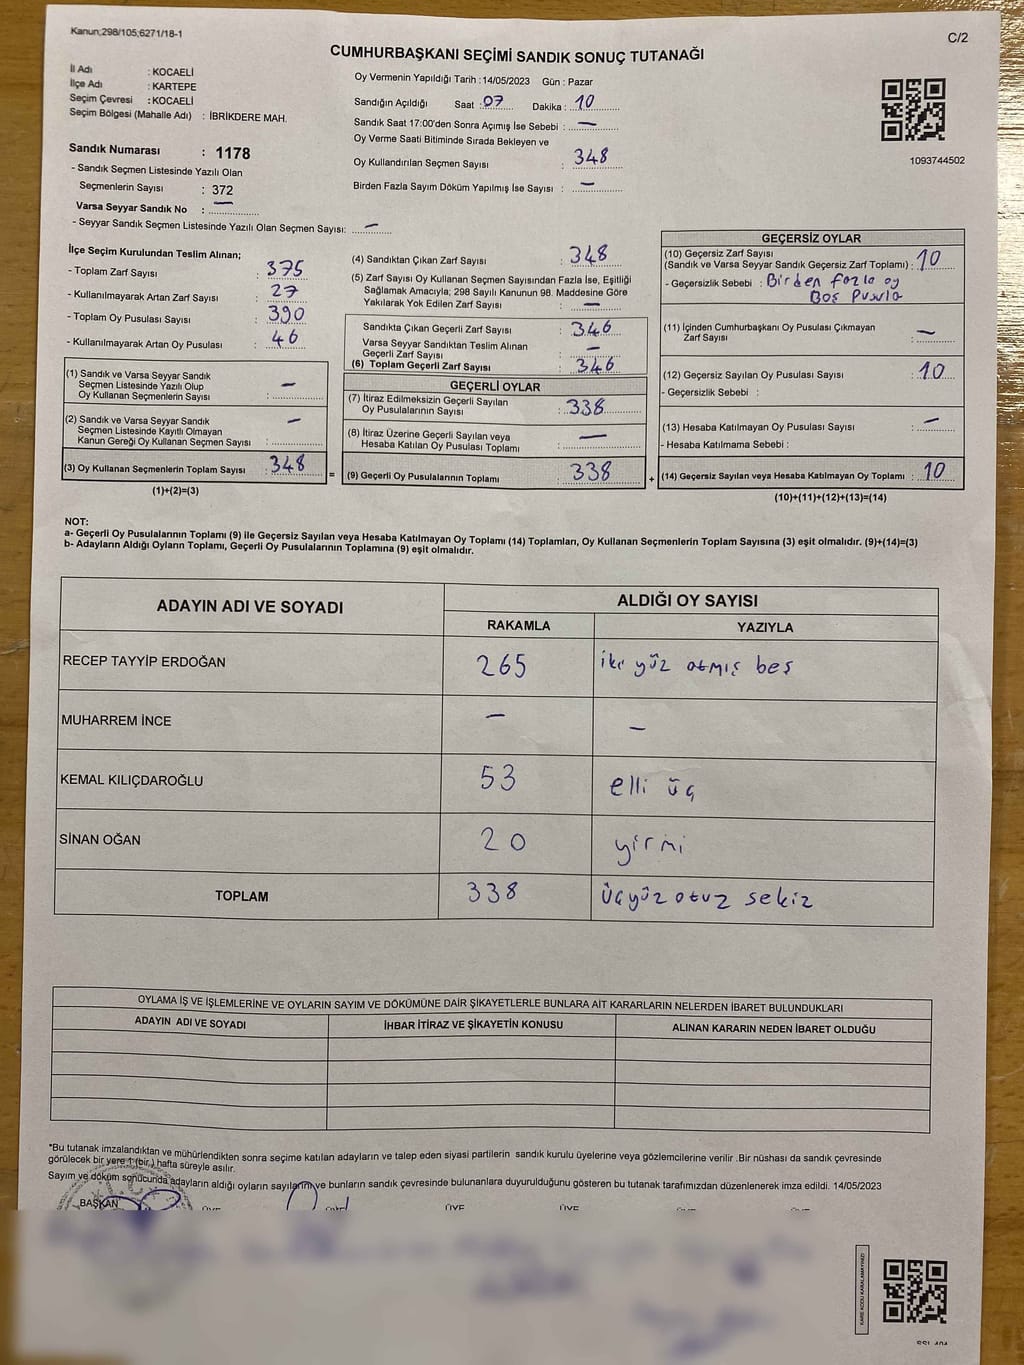 Kanun;298/105;6271/18-1
C/2
CUMHURBAŞKANI SEÇİMİ SANDIK SONUÇ TUTANAĞI
İl Adı : KOCAELİ
İlçe Adı : KARTEPE
Seçim Çevresi : KOCAELİ
Seçim Bölgesi (Mahalle Adı) : İBRİKDERE MAH.
Sandık Numarası : 1178
- Sandık Seçmen Listesinde Yazılı Olan
Seçmenlerin Sayısı : 372
Varsa Seyyar Sandık No : —
- Seyyar Sandık Seçmen Listesinde Yazılı Olan Seçmen Sayısı: —
Oy Vermenin Yapıldığı Tarih : 14/05/2023 Gün : Pazar
Sandığın Açıldığı Saat : 07 Dakika : 10
Sandık Saat 17:00'den Sonra Açımış İse Sebebi : —
Oy Verme Saati Bitiminde Sırada Bekleyen ve
Oy Kullandırılan Seçmen Sayısı : 348
Birden Fazla Sayım Döküm Yapılmış İse Sayısı : —
1093744502
İlçe Seçim Kurulundan Teslim Alınan;
- Toplam Zarf Sayısı : 375
- Kullanılmayarak Artan Zarf Sayısı : 27
- Toplam Oy Pusulası Sayısı : 390
- Kullanılmayarak Artan Oy Pusulası : 46
(1) Sandık ve Varsa Seyyar Sandık
Seçmen Listesinde Yazılı Olup
Oy Kullanan Seçmenlerin Sayısı : —
(2) Sandık ve Varsa Seyyar Sandık
Seçmen Listesinde Kayıtlı Olmayan
Kanun Gereği Oy Kullanan Seçmen Sayısı : —
(3) Oy Kullanan Seçmenlerin Toplam Sayısı : 348 =
(1)+(2)=(3)
(4) Sandıktan Çıkan Zarf Sayısı : 348
(5) Zarf Sayısı Oy Kullanan Seçmen Sayısından Fazla İse, Eşitliği
Sağlamak Amacıyla; 298 Sayılı Kanunun 98. Maddesine Göre
Yakılarak Yok Edilen Zarf Sayısı : —
Sandıkta Çıkan Geçerli Zarf Sayısı : 346
Varsa Seyyar Sandıktan Teslim Alınan
Geçerli Zarf Sayısı : —
(6) Toplam Geçerli Zarf Sayısı : 346
GEÇERLİ OYLAR
(7) İtiraz Edilmeksizin Geçerli Sayılan
Oy Pusulalarının Sayısı : 338
(8) İtiraz Üzerine Geçerli Sayılan veya
Hesaba Katılan Oy Pusulası Toplamı : —
(9) Geçerli Oy Pusulalarının Toplamı : 338 +
GEÇERSİZ OYLAR
(10) Geçersiz Zarf Sayısı
(Sandık ve Varsa Seyyar Sandık Geçersiz Zarf Toplamı) : 10
- Geçersizlik Sebebi : Birden fazla oy
Boş Pusula
(11) İçinden Cumhurbaşkanı Oy Pusulası Çıkmayan
Zarf Sayısı : —
(12) Geçersiz Sayılan Oy Pusulası Sayısı : 10
- Geçersizlik Sebebi :
(13) Hesaba Katılmayan Oy Pusulası Sayısı : —
- Hesaba Katılmama Sebebi :
(14) Geçersiz Sayılan veya Hesaba Katılmayan Oy Toplamı : 10
(10)+(11)+(12)+(13)=(14)
NOT:
a- Geçerli Oy Pusulalarının Toplamı (9) ile Geçersiz Sayılan veya Hesaba Katılmayan Oy Toplamı (14) Toplamları, Oy Kullanan Seçmenlerin Toplam Sayısına (3) eşit olmalıdır. (9)+(14)=(3)
b- Adayların Aldığı Oyların Toplamı, Geçerli Oy Pusulalarının Toplamına (9) eşit olmalıdır.
ADAYIN ADI VE SOYADI ALDIĞI OY SAYISI
RAKAMLA YAZIYLA
RECEP TAYYİP ERDOĞAN 265 iki yüz atmış beş
MUHARREM İNCE — —
KEMAL KILIÇDAROĞLU 53 elli üç
SİNAN OĞAN 20 yirmi
TOPLAM 338 üçyüz otuz sekiz
OYLAMA İŞ VE İŞLEMLERİNE VE OYLARIN SAYIM VE DÖKÜMÜNE DAİR ŞİKAYETLERLE BUNLARA AİT KARARLARIN NELERDEN İBARET BULUNDUKLARI
ADAYIN ADI VE SOYADI İHBAR İTİRAZ VE ŞİKAYETİN KONUSU ALINAN KARARIN NEDEN İBARET OLDUĞU
*Bu tutanak imzalandıktan ve mühürlendikten sonra seçime katılan adayların ve talep eden siyasi partilerin sandık kurulu üyelerine veya gözlemcilerine verilir .Bir nüshası da sandık çevresinde
görülecek bir yere 1 (bir ) hafta süreyle asılır.
Sayım ve döküm sonucunda adayların aldığı oyların sayılarını ve bunların sandık çevresinde bulunanlara duyurulduğunu gösteren bu tutanak tarafımızdan düzenlenerek imza edildi. 14/05/2023
BAŞKAN ÜYE ÜYE
KARE KODU KARALAMAYINIZ!